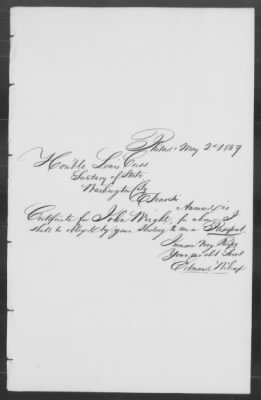 Philad. May 2d 1859
Honble Lewis Cass
Secretary of State
Washington City
Dear Sir
Annexed is
Certificate for John Wright, for whom I
shall be obliged by your sending to me a Passport
I am very Resp.
Your obt Servt
Edward